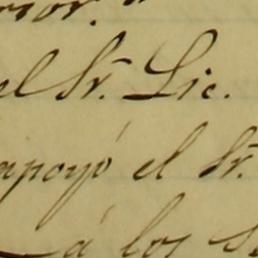 el Sr. Lic.
apoyó el Sr.
á los